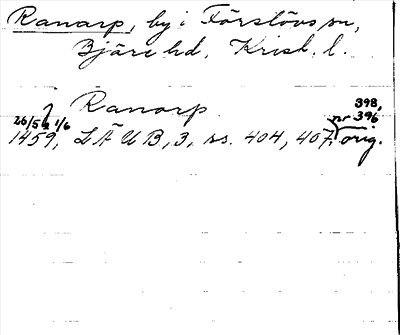 Ranarp, by i Förslövs sn,
Bjäre hd, Krist. l.
Ranarp
398,
26/5 1/6 nr 396
1459, LÄUB, 3, ss. 404, 407. orig.